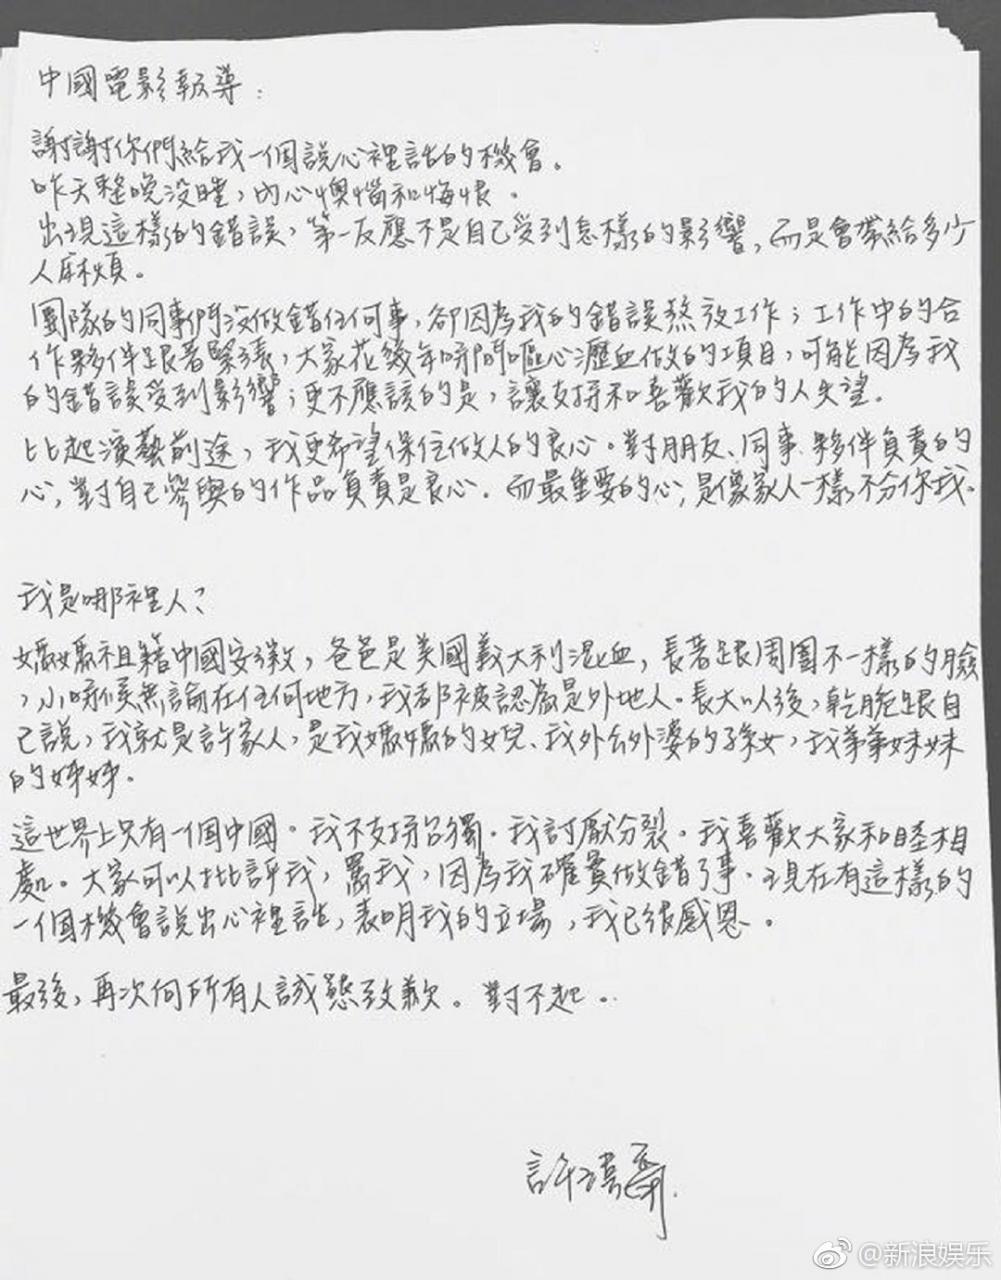 中國電影報導：
謝謝你們給我一個說心裡話的機會。
昨天整晚沒睡，內心懊惱和悔恨。
出現這樣的錯誤，第一反應不是自己受到怎樣的影響，而是會帶給多少
人麻煩。
團隊的同事們沒做錯任何事，卻因為我的錯誤熬夜工作；工作中的合
作夥伴跟著緊張，大家花幾年時間嘔心瀝血做的項目，可能因為我
的錯誤受到影響；更不應該的是，讓支持和喜歡我的人失望。
比起演藝前途，我更希望保住做人的良心。對朋友、同事、夥伴負責的
心，對自己參與的作品負責是良心。而最重要的心，是像家人一樣不分你我。
我是哪裡人？
媽媽祖籍中國安徽，爸爸是美國義大利混血，長著跟周圍不一樣的臉
，小時候無論在任何地方，我都被認為是外地人。長大以後，乾脆跟自
己說，我就是許家人，是我媽媽的女兒、我外公外婆的孫女，我弟弟妹妹
的姊姊。
這世界上只有一個中國。我不支持台獨。我討厭分裂。我喜歡大家和睦相
處。大家可以批評我，罵我，因為我確實做錯了事。現在有這樣的
一個機會說出心裡話，表明我的立場，我已很感恩。
最後，再次向所有人誠懇致歉。對不起。
許瑋甯
@新浪娱乐